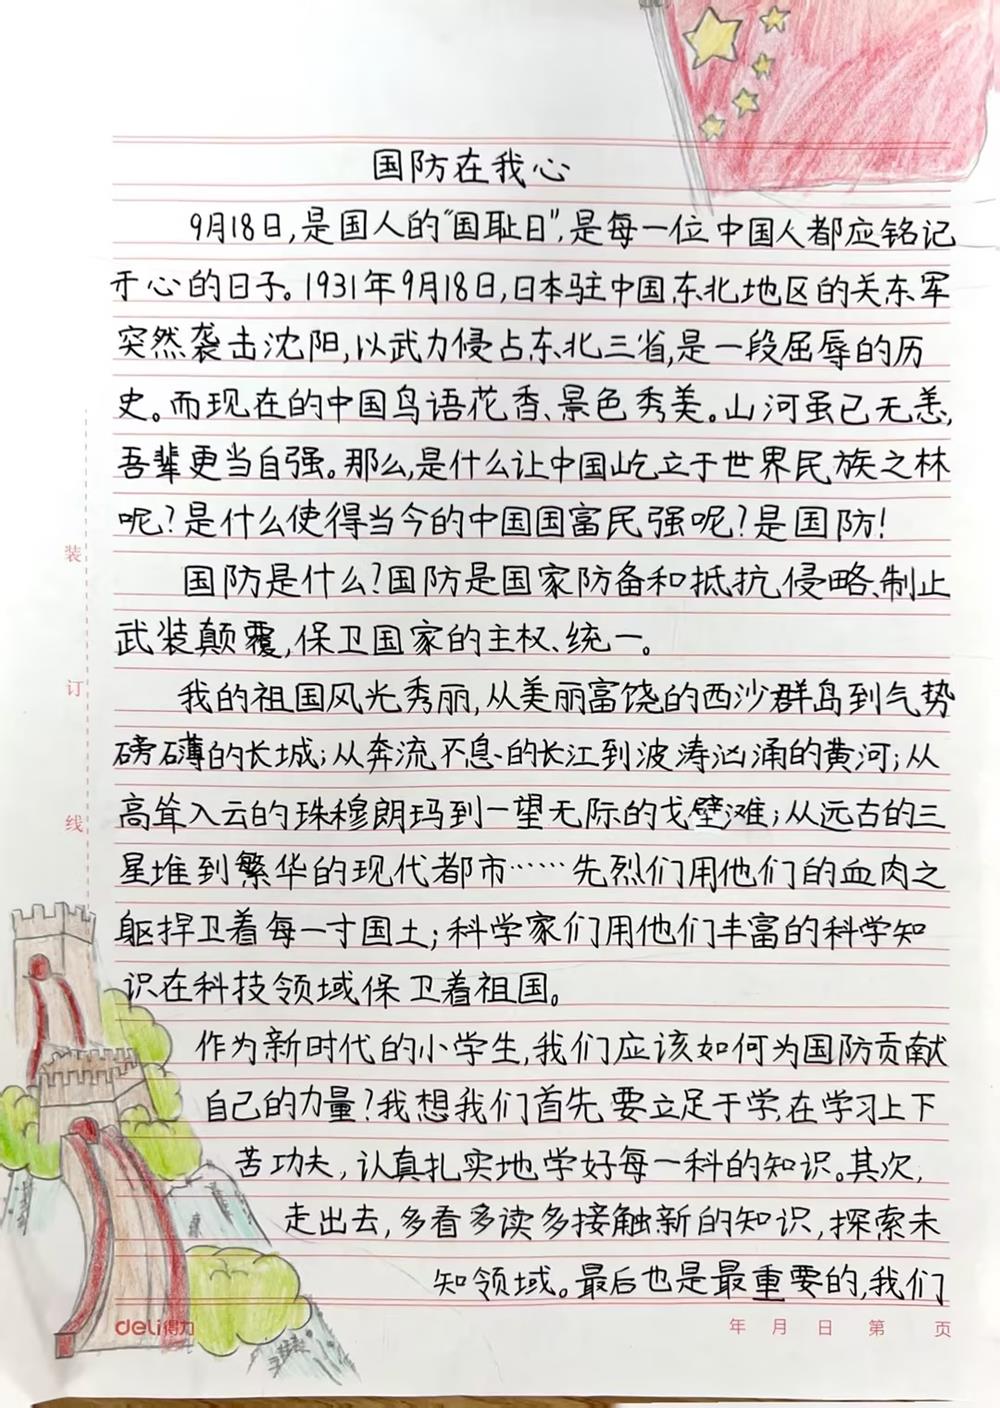 国防在我心
9月18日,是国人的“国耻日”,是每一位中国人都应铭记
于心的日子。1931年9月18日,日本驻中国东北地区的关东军
突然袭击沈阳,以武力侵占东北三省,是一段屈辱的历
史。而现在的中国鸟语花香、景色秀美。山河虽已无恙,
吾辈更当自强。那么,是什么让中国屹立于世界民族之林
呢?是什么使得当今的中国国富民强呢?是国防!
国防是什么?国防是国家防备和抵抗侵略、制止
武装颠覆,保卫国家的主权、统一。
我的祖国风光秀丽,从美丽富饶的西沙群岛到气势
磅礴的长城;从奔流不息的长江到波涛汹涌的黄河;从
高耸入云的珠穆朗玛到一望无际的戈壁滩;从远古的三
星堆到繁华的现代都市……先烈们用他们的血肉之
躯捍卫着每一寸国土;科学家们用他们丰富的科学知
识在科技领域保卫着祖国。
作为新时代的小学生,我们应该如何为国防贡献
自己的力量?我想我们首先要立足于学,在学习上下
苦功夫,认真扎实地学好每一科的知识。其次,
走出去,多看多读多接触新的知识,探索未
知领域。最后也是最重要的,我们
装
订
线
deli得力
年 月 日 第 页